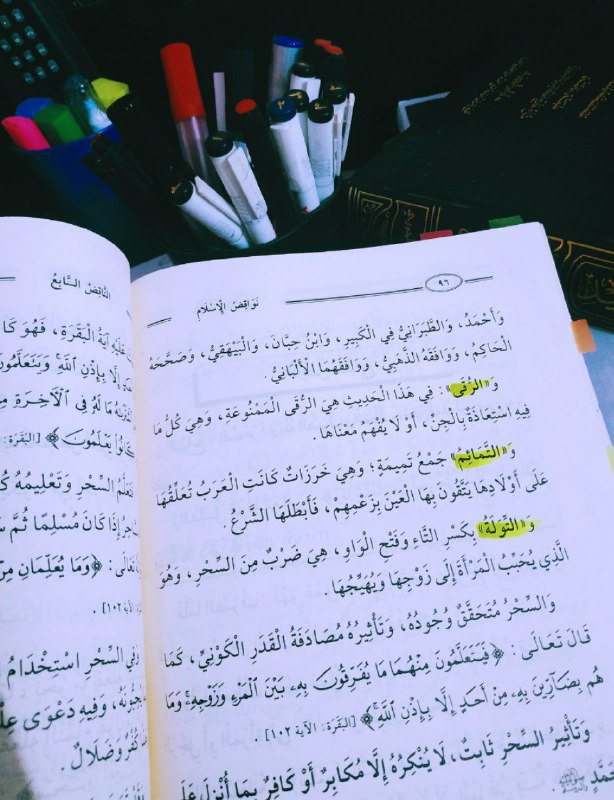 ٩٦
نَوَاقِضُ الْإِسْلَامِ
وَأَحْمَدُ، وَالطَّبَرَانِيُّ فِي الْكَبِيرِ، وَابْنُ حِبَّانَ، وَالْبَيْهَقِيُّ، وَصَحَّحَهُ
الْحَاكِمُ، وَوَافَقَهُ الذَّهَبِيُّ، وَوَافَقَهُمَا الْأَلْبَانِيُّ.
وَ«الرُّقَى»: فِي هَذَا الْحَدِيثِ هِيَ الرُّقَى الْمَمْنُوعَةِ، وَهِيَ كُلُّ مَا
فِيهِ اسْتِعَاذَةٌ بِالْجِنِّ، أَوْ لَا يُفْهَمُ مَعْنَاهَا.
وَ«التَّمَائِمُ» جَمْعُ تَمِيمَةٍ؛ وَهِيَ خَرَزَاتٌ كَانَتِ الْعَرَبُ تُعَلِّقُهَا
عَلَى أَوْلَادِهَا يَتَّقُونَ بِهَا الْعَيْنَ بِزَعْمِهِمْ، فَأَبْطَلَهَا الشَّرْعُ.
وَ«التِّوَلَةُ» بِكَسْرِ التَّاءِ وَفَتْحِ الْوَاوِ، هِيَ ضَرْبٌ مِنَ السِّحْرِ، وَهُوَ
الَّذِي يُحَبِّبُ الْمَرْأَةَ إِلَى زَوْجِهَا وَيُهَيِّجُهَا.
وَالسِّحْرُ مُتَحَقَّقٌ وُجُودُهُ، وَتَأْثِيرُهُ مُصَادَفَةُ الْقَدَرِ الْكَوْنِيِّ، كَمَا
قَالَ تَعَالَى: ﴿فَيَتَعَلَّمُونَ مِنْهُمَا مَا يُفَرِّقُونَ بِهِ بَيْنَ الْمَرْءِ وَزَوْجِهِ وَمَا
هُم بِضَارِّينَ بِهِ مِنْ أَحَدٍ إِلَّا بِإِذْنِ اللَّهِ﴾ [البقرة: الآية ١٠٢].
وَتَأْثِيرُ السِّحْرِ ثَابِتٌ، لَا يُنْكِرُهُ إِلَّا مُكَابِرٌ أَوْ كَافِرٌ بِمَا أُنْزِلَ عَلَى
ﷺ.
النَّاقِضُ السَّابِعُ
عَلَيْهِ آيَةُ الْبَقَرَةِ، فَهُوَ
إِلَّا بِإِذْنِ اللَّهِ وَيَتَعَلَّمُونَ
مَا لَهُ فِي الْآخِرَةِ
يَعْلَمُونَ﴾ [البقرة:
السِّحْرِ وَتَعْلِيمُهُ
إِذَا كَانَ مُسْلِمًا ثُمَّ
﴿وَمَا يُعَلِّمَانِ
الآية ١٠٢].
فِي السِّحْرِ اسْتِخْدَامُ
وَفِيهِ دَعْوَى
كُفْرٌ وَضَلَالٌ.